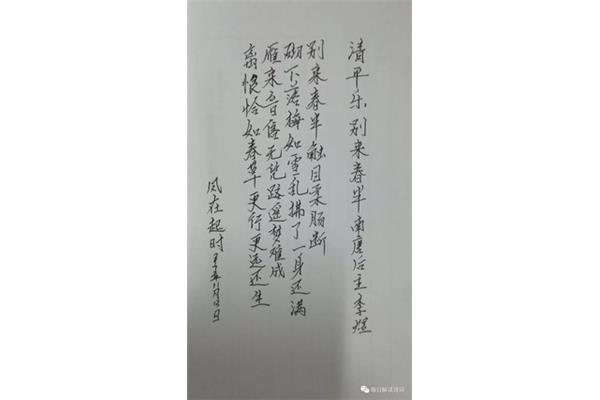 清平乐 别来春半 南唐后主李煜
别来春半触目柔肠断
砌下落梅如雪乱拂了一身还满
雁来音信无凭路遥梦难成
离恨恰如春草更行更远还生
风在起时
每日解读诗词